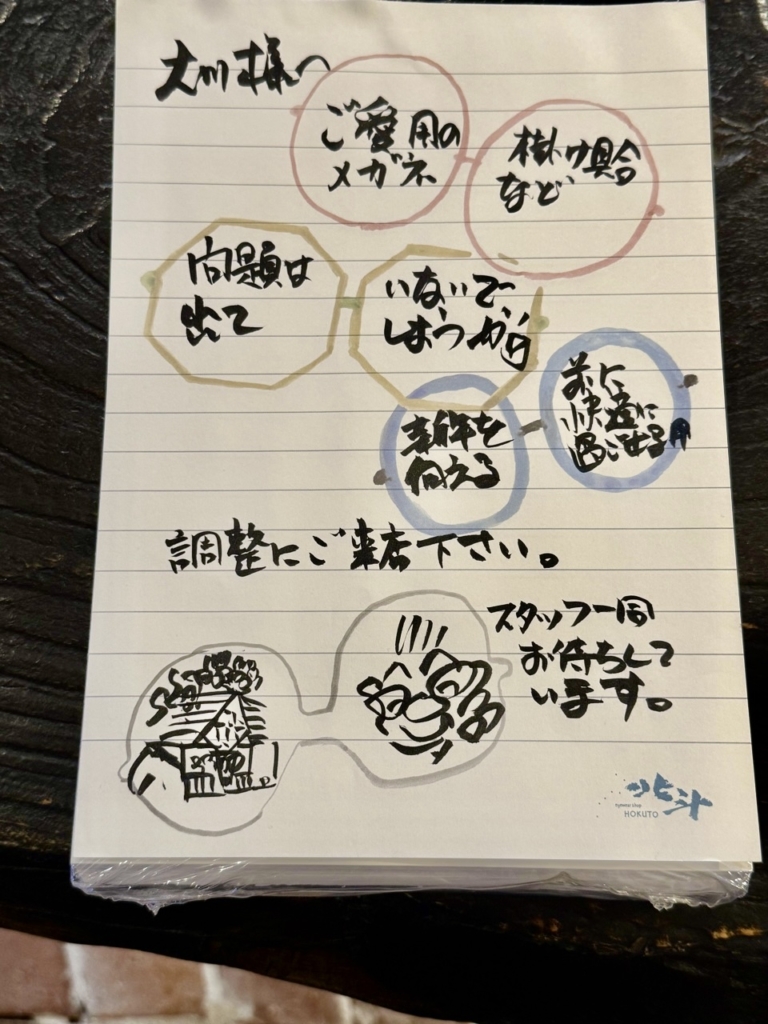 大川様へ
ご愛用の
メガネ
掛け具合
など
問題は
出て
いないで
しょうか?
来年を
迎える
前に
快適に
過ごせる様
調整にご来店下さい。
スタッフ一同
お待ちして
います。
北斗
HOKUTO